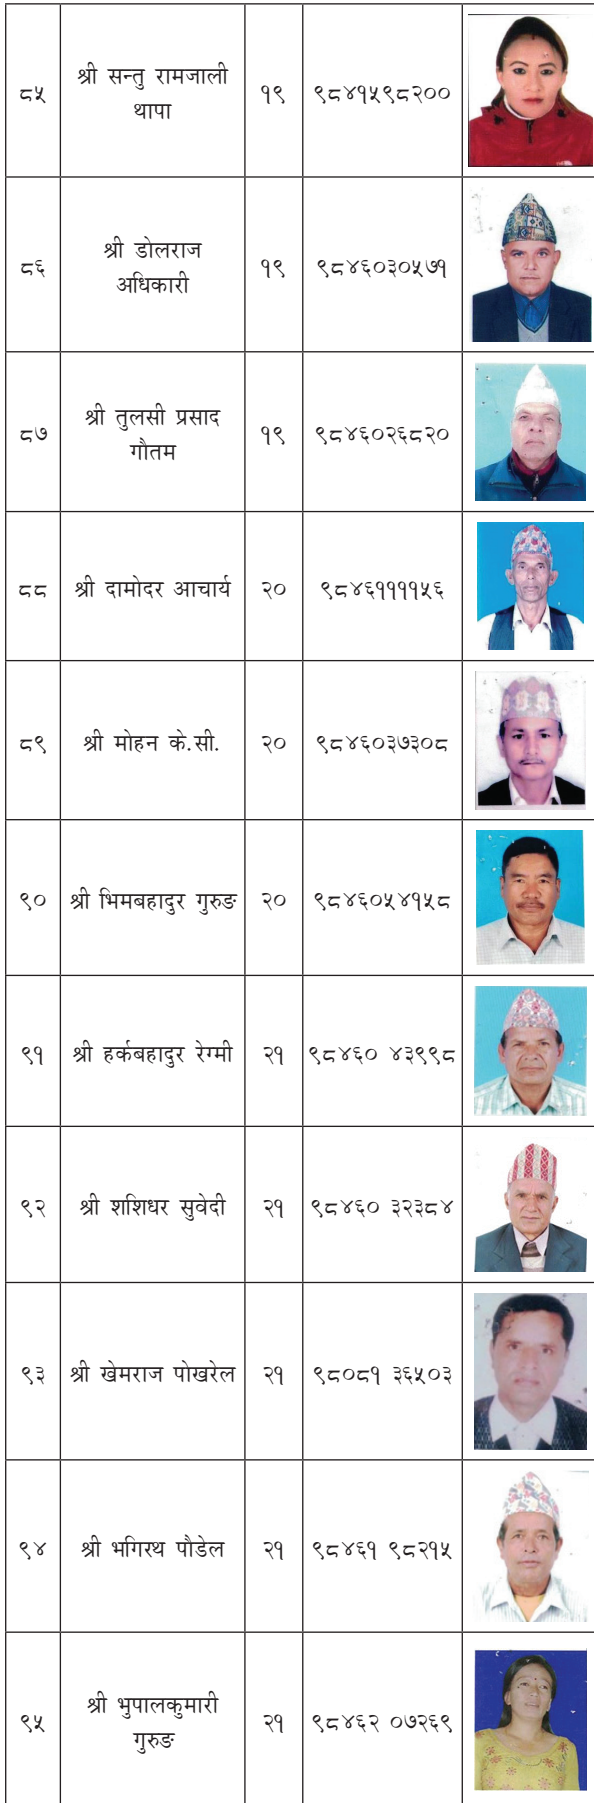 ८५ श्री सन्तु रामजाली १९ ९८४१५९८२००
थापा
८६ श्री डोलराज १९ ९८४६०३०५७१
अधिकारी
८७ श्री तुलसी प्रसाद १९ ९८४६०२६८२०
गौतम
८८ श्री दामोदर आचार्य २० ९८४६११११५६
८९ श्री मोहन के.सी. २० ९८४६०३७३०८
९० श्री भिमबहादुर गुरुङ २० ९८४६०५४१५८
९१ श्री हर्कबहादुर रेग्मी २१ ९८४६० ४३९९८
९२ श्री शशिधर सुवेदी २१ ९८४६० ३२३८४
९३ श्री खेमराज पोखरेल २१ ९८०८१ ३६५०३
९४ श्री भगिरथ पौडेल २१ ९८४६१ ९८२१५
९५ श्री भुपालकुमारी २१ ९८४६२ ०७२६९
गुरुङ